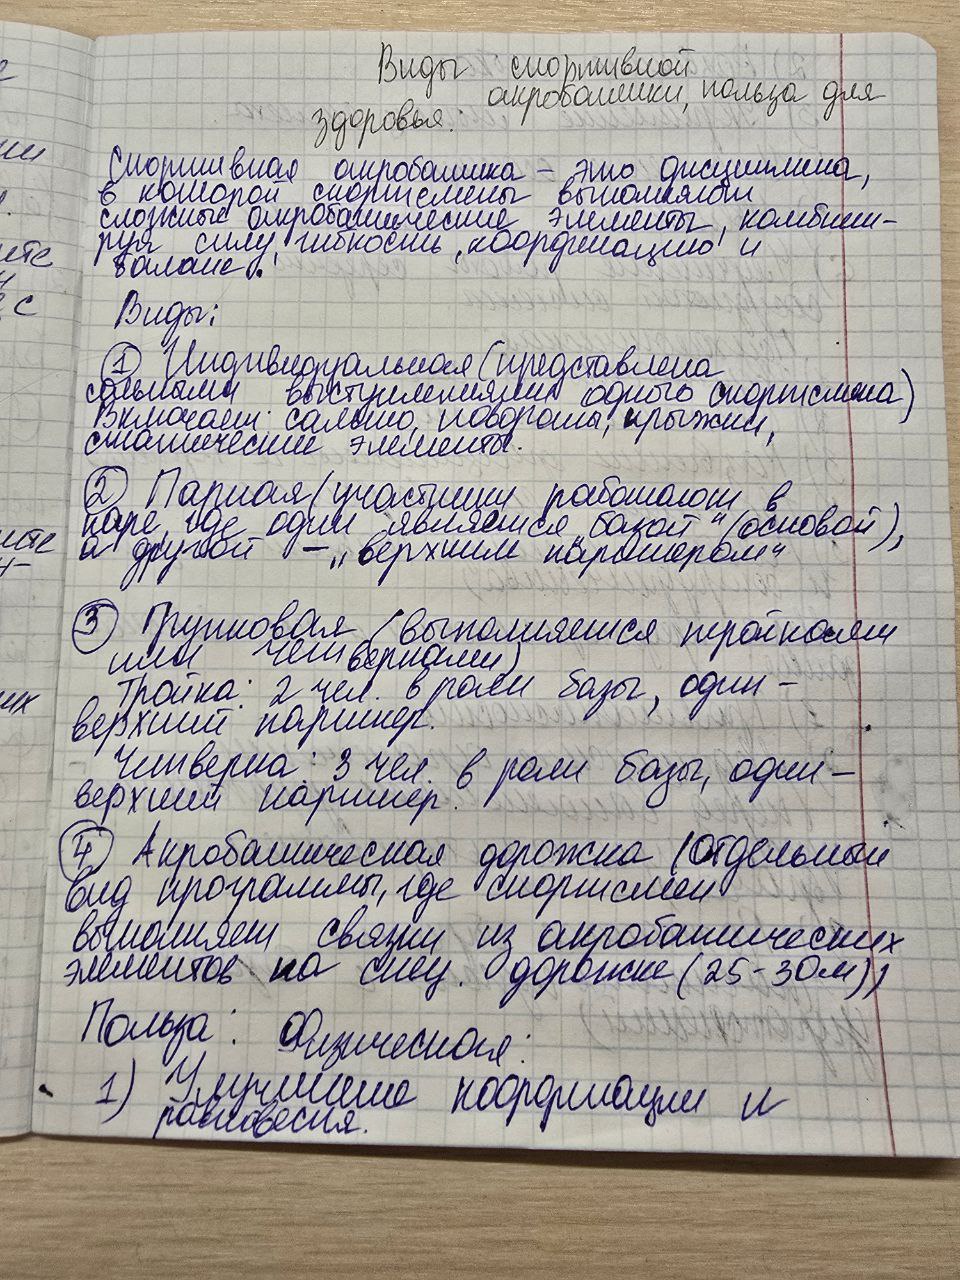 Виды спортивной
акробатики, польза для
здоровья.
Спортивная акробатика – это дисциплина,
в которой спортсмены выполняют
сложные акробатические элементы, комбини-
руя силу, гибкость, координацию и
баланс.
Виды:
1 Индивидуальная (представлена
сольными выступлениями одного спортсмена)
Включает: сальто, повороты, прыжки,
статические элементы.
2 Парная (участники работают в
паре, где один является „базой" (основой),
а другой – „верхним партнером"
3 Групповая (выполняется тройками
или четверками)
Тройка: 2 чел. в роли базы, один –
верхний партнер.
Четверка: 3 чел. в роли базы, один –
верхний партнер.
4 Акробатическая дорожка (отдельный
вид программы, где спортсмен
выполняет связки из акробатических
элементов на спец. дорожке (25-30м))
Польза: Физическая:
1) Улучшение координации и
равновесия.
е
ии
ете
и
с
ите
и-
их